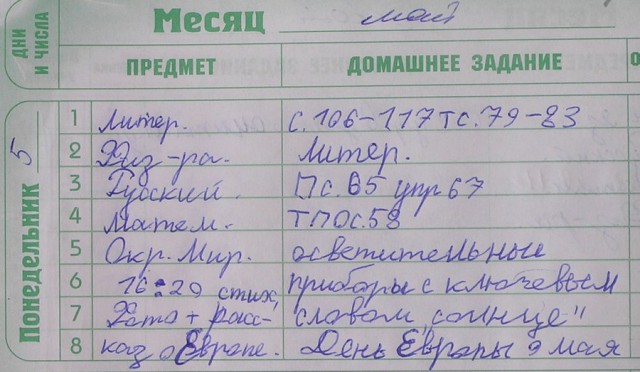 ДНИ И ЧИСЛА
Месяц май
ПРЕДМЕТ ДОМАШНЕЕ ЗАДАНИЕ
Понедельник 5
1 Литер. с. 106-117 тс. 79-83
2 Физ-ра. Литер.
3 Русский. Пс. 65 упр 67
4 Матем. ТПОс. 58
5 Окр. Мир. осветительные
6 16:29 стих, приборы с ключевым
7 Фото + расс- словом "солнце"
8 каз о Европе. День Европы 9 мая